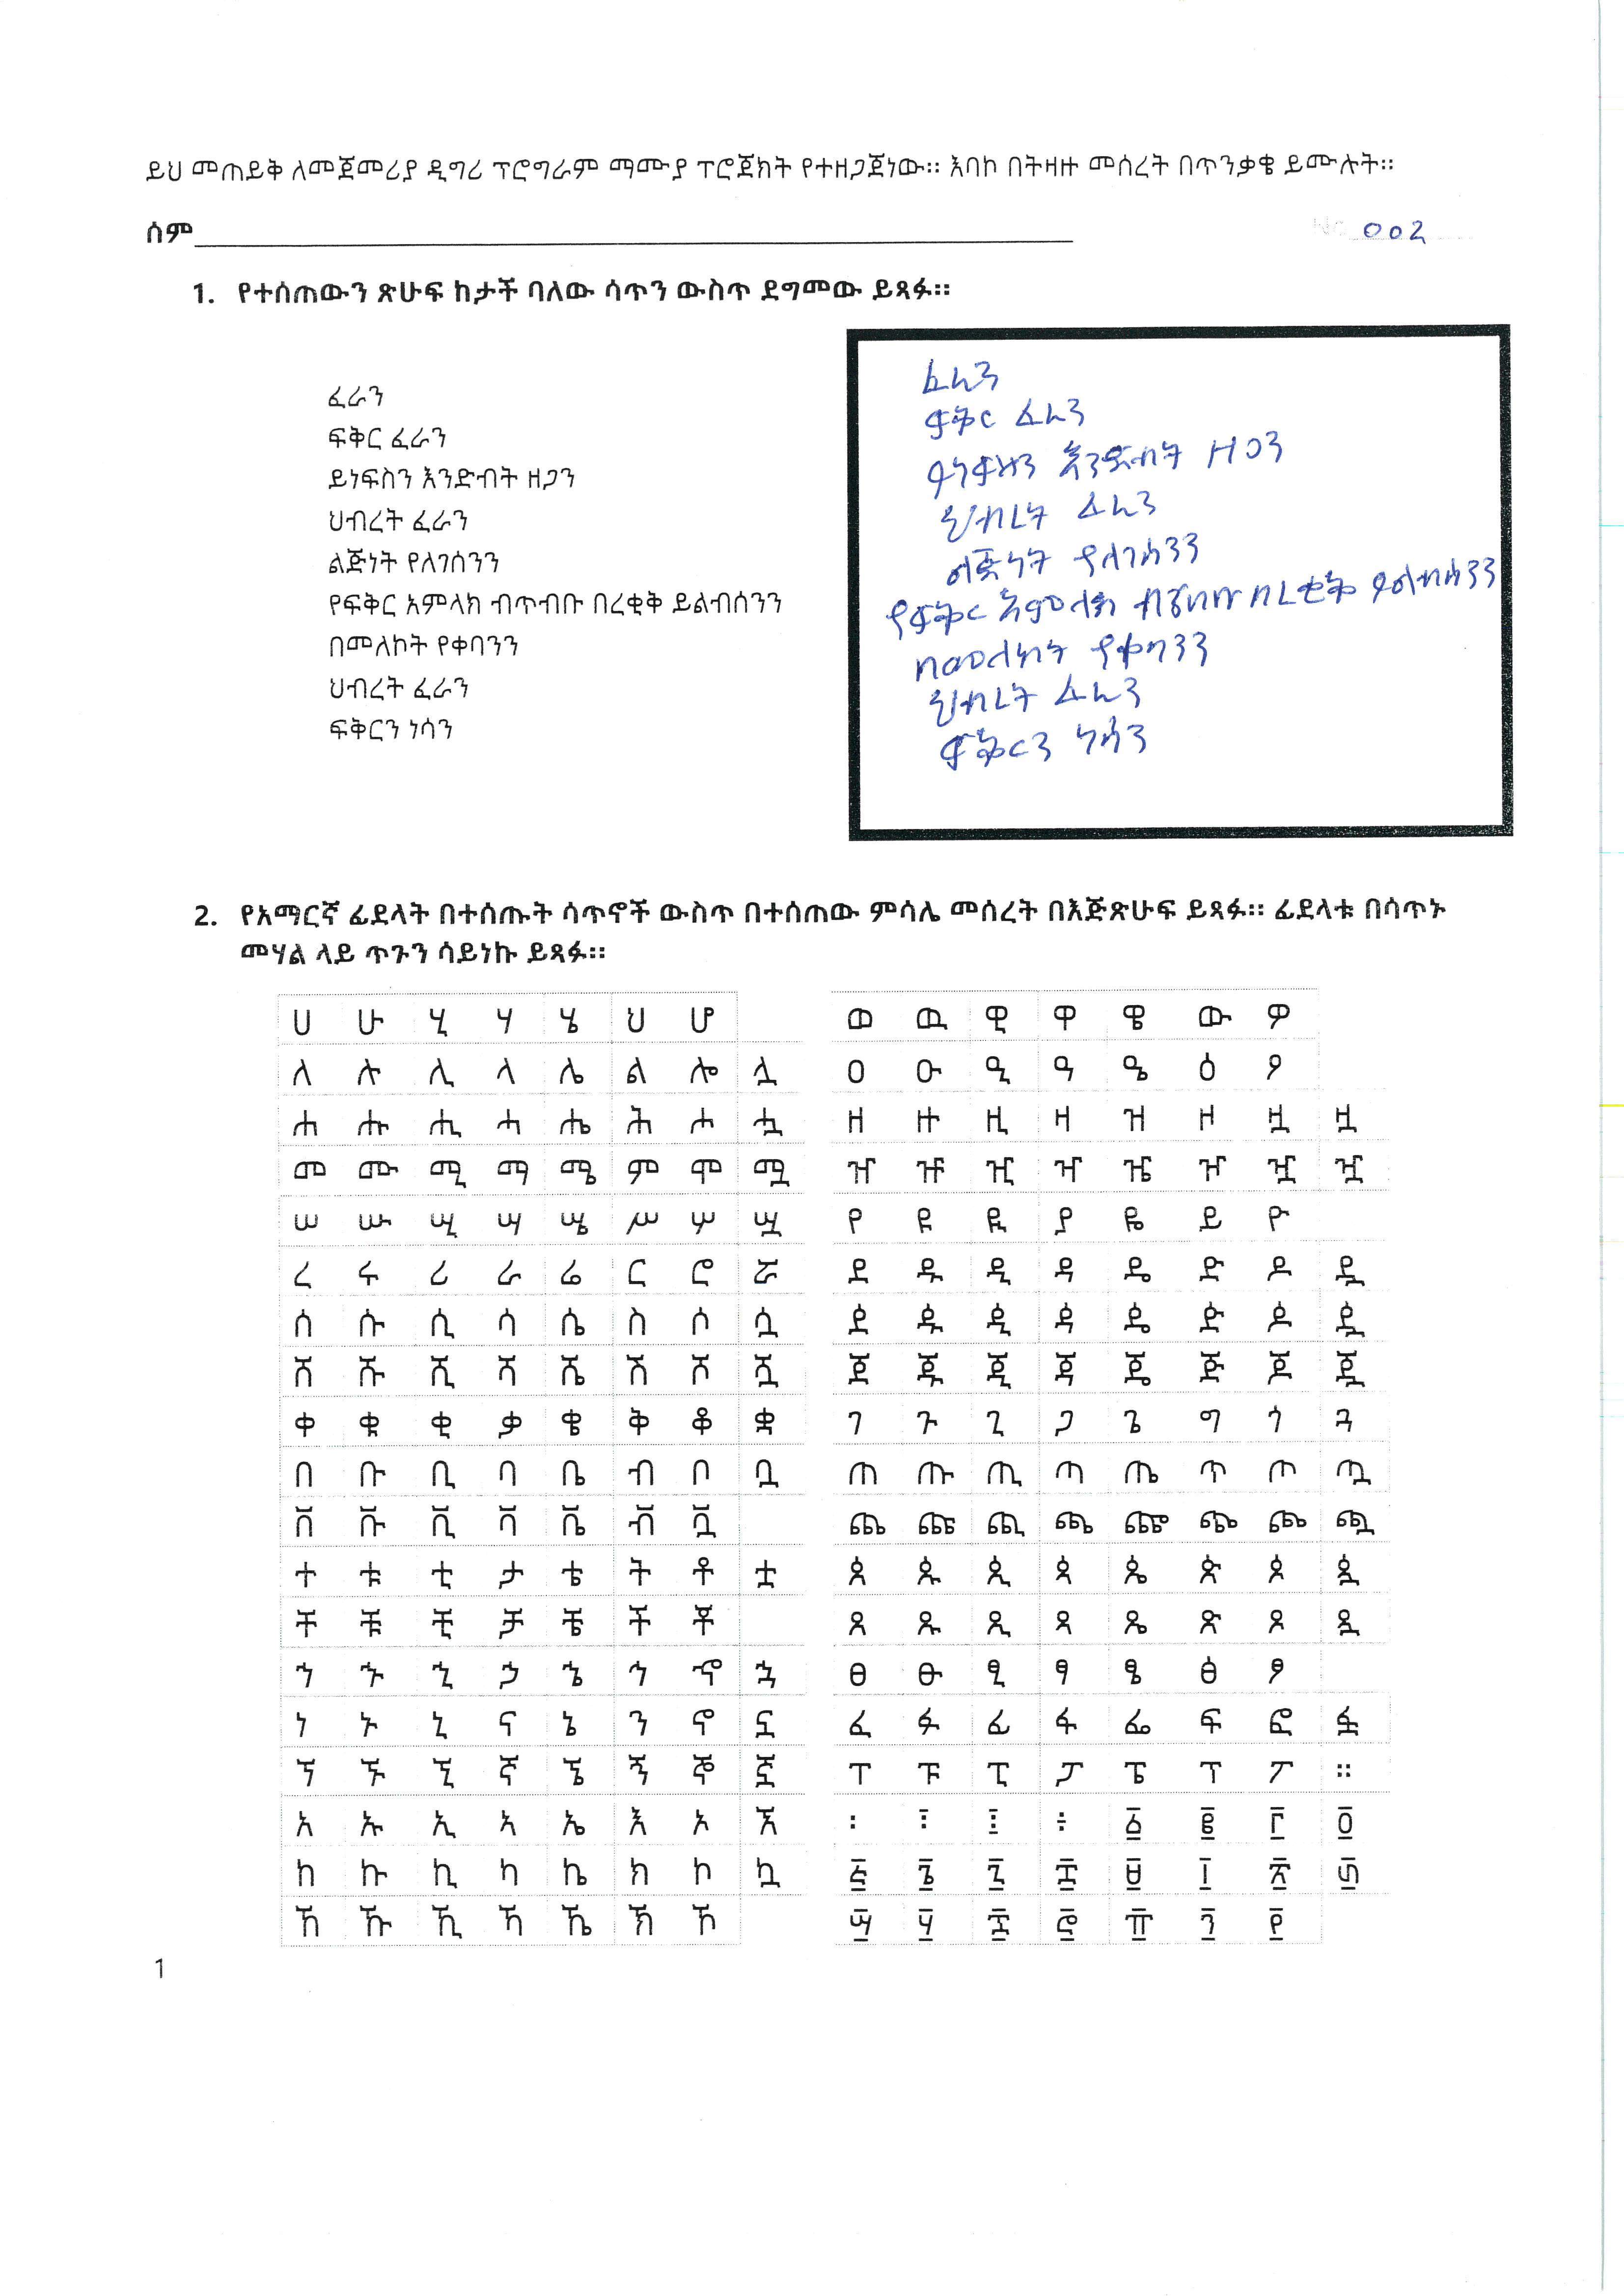 ይህ መጠይቅ ለመጀመሪያ ዲግሪ ፕሮግራም ማሙያ ፕሮጀክት የተዘጋጀነው። እባኮ በትዛዙ መሰረት በጥንቃቄ ይሙሉት።
ሰም
No 002
1. የተሰጠውን ጽሁፍ ከታች ባለው ሳጥን ውስጥ ደግመው ይጻፉ።
ፈራን
ፍቅር ፈራን
ይነፍስን እንድብት ዘጋን
ህብረት ፈራን
ልጅነት የለገሰንን
የፍቅር አምላክ ብጥብቡ በረቂቅ ይልብሰንን
በመለኮት የቀባንን
ህብረት ፈራን
ፍቅርን ነሳን
ፈራን
ፍቅር ፈራን
ይነፍስን እንድብት ዘጋን
ህብረት ፈራን
ልጅነት የለገሰንን
የፍቅር አምላክ ብጥብቡ በረቂቅ ይልብሰንን
በመለኮት የቀባንን
ህብረት ፈራን
ፍቅርን ነሳን
2. የአማርኛ ፊደላት በተሰጡት ሳጥኖች ውስጥ በተሰጠው ምሳሌ መሰረት በእጅጽሁፍ ይጻፉ። ፊደላቱ በሳጥኑ
መሃል ላይ ጥጉን ሳይነኩ ይጻፉ።
ሀ ሁ ሂ ሃ ሄ ህ ሆ
ለ ሉ ሊ ላ ሌ ል ሎ ሏ
ሐ ሑ ሒ ሓ ሔ ሕ ሖ ሗ
መ ሙ ሚ ማ ሜ ም ሞ ሟ
ሠ ሡ ሢ ሣ ሤ ሥ ሦ ሧ
ረ ሩ ሪ ራ ሬ ር ሮ ሯ
ሰ ሱ ሲ ሳ ሴ ስ ሶ ሷ
ሸ ሹ ሺ ሻ ሼ ሽ ሾ ሿ
ቀ ቁ ቂ ቃ ቄ ቅ ቆ ቋ
በ ቡ ቢ ባ ቤ ብ ቦ ቧ
ቨ ቩ ቪ ቫ ቬ ቭ ቯ
ተ ቱ ቲ ታ ቴ ት ቶ ቷ
ቸ ቹ ቺ ቻ ቼ ች ቾ
ኀ ኁ ኂ ኃ ኄ ኅ ኆ ኋ
ነ ኑ ኒ ና ኔ ን ኖ ኗ
ኘ ኙ ኚ ኛ ኜ ኝ ኞ ኟ
አ ኡ ኢ ኣ ኤ እ ኦ ኧ
ከ ኩ ኪ ካ ኬ ክ ኮ ኳ
ኸ ኹ ኺ ኻ ኼ ኽ ኾ
ወ ዉ ዊ ዋ ዌ ው ዎ
ዐ ዑ ዒ ዓ ዔ ዕ ዖ
ዘ ዙ ዚ ዛ ዝ ዞ ዟ ዟ
ዠ ዡ ዢ ዣ ዤ ዦ ዧ ዧ
የ ዩ ዪ ያ ዬ ይ ዮ
ደ ዱ ዲ ዳ ዴ ድ ዶ ዷ
ዸ ዹ ዺ ዻ ዼ ዽ ዾ ዿ
ጀ ጁ ጂ ጃ ጄ ጅ ጆ ጇ
ገ ጉ ጊ ጋ ጌ ግ ጎ ጓ
ጠ ጡ ጢ ጣ ጤ ጥ ጦ ጧ
ጨ ጩ ጪ ጫ ጬ ጭ ጮ ጯ
ጰ ጱ ጲ ጳ ጴ ጵ ጶ ጷ
ጸ ጹ ጺ ጻ ጼ ጽ ጾ ጿ
ፀ ፁ ፂ ፃ ፄ ፅ ፆ
ፈ ፉ ፊ ፋ ፌ ፍ ፎ ፏ
ፐ ፑ ፒ ፓ ፔ ፕ ፖ ።
፡ ፣ ፤ ÷ ፩ ፪ ፫ ፬
፭ ፮ ፯ ፰ ፱ ፲ ፳ ፴
፵ ፶ ፷ ፸ ፹ ፺ ፻
1